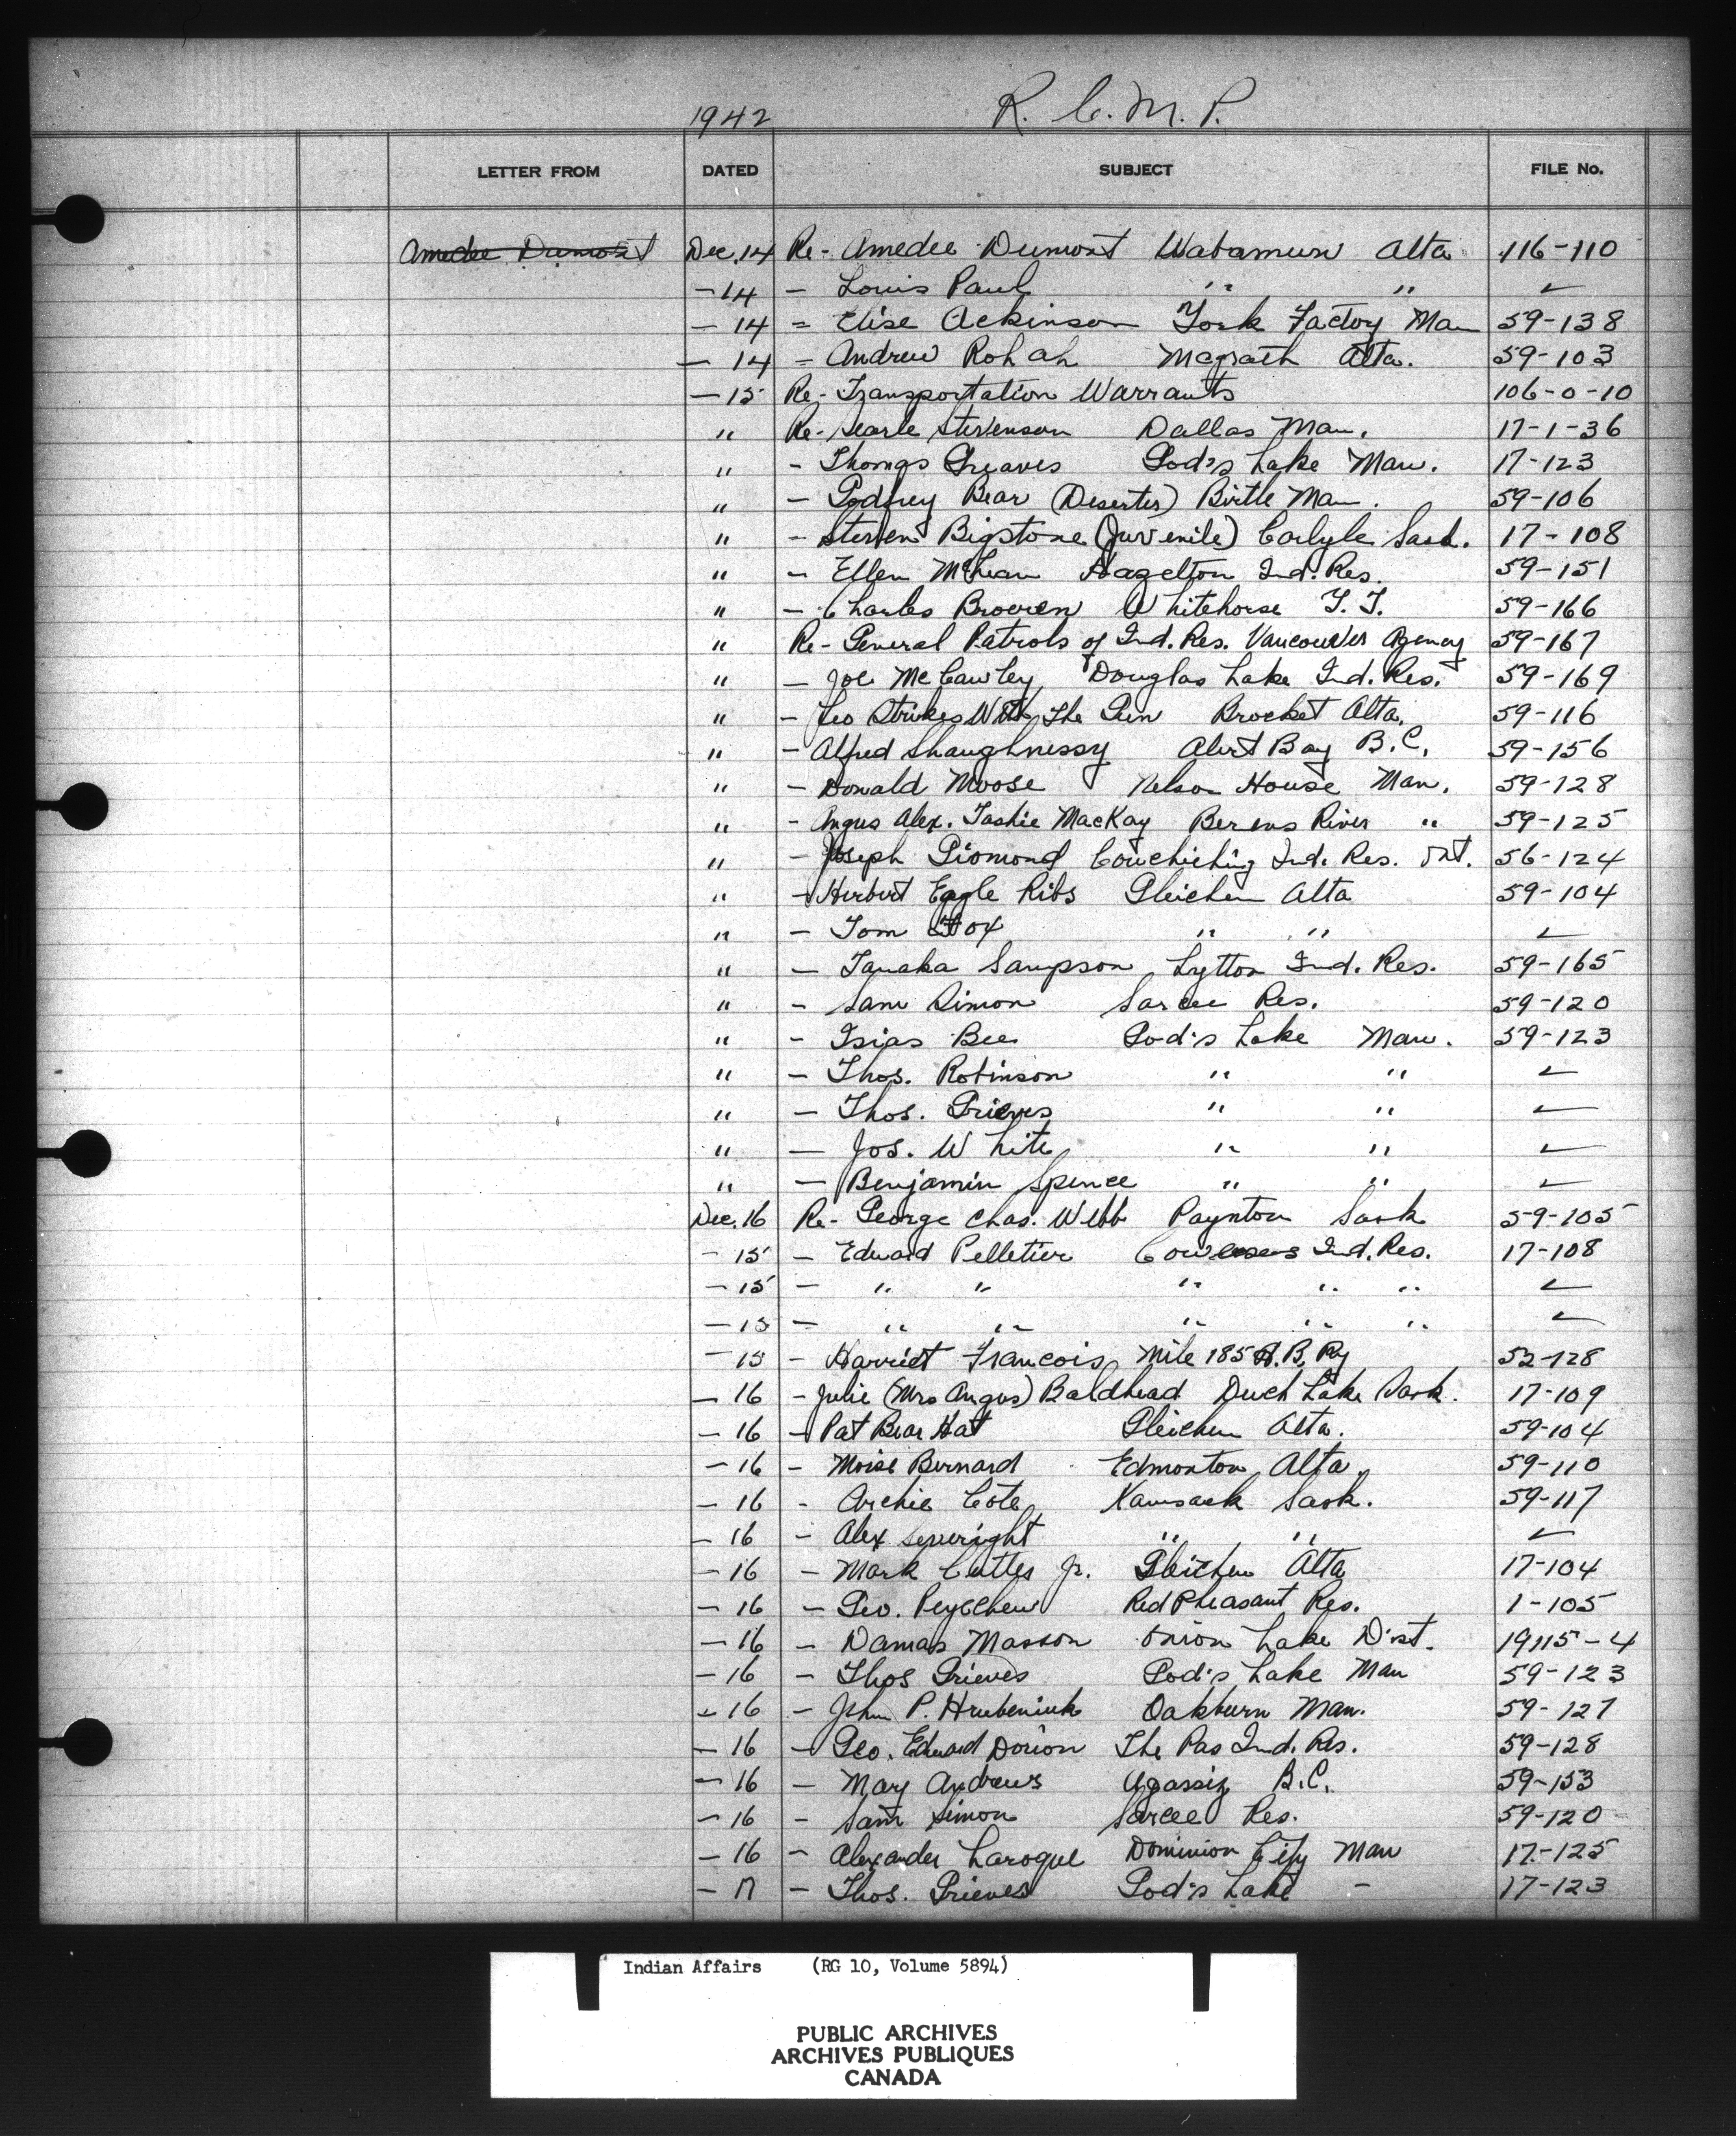 1942 R. C. M. P.
LETTER FROM DATED SUBJECT FILE No.
Amedee Dumont Dec. 14 Re- Amedee Dumont Wabamun Alta 116-110
- 14 - Louis Paul " " ✓
- 14 = Elise Ackinson York Factoy Man 59-138
- 14 = Andrew Rohah Magrath Alta. 59-103
- 15 Re- Transportation Warrants 106-0-10
" Re- Searle Stevenson Dallas Man. 17-1-36
" - Thomas Greaves God's Lake Man. 17-123
" - Godfrey Bear (Deserter) Birtle Man. 59-106
" - Steven Bigstone (Juvenile) Carlyle Sask. 17-108
" - Ellen McLean Hazelton Ind. Res. 59-151
" - Charles Browen Whitehorse Y. T. 59-166
" Re- General Patrols of Ind. Res. Vancouver Agency 59-167
" - Joe McCawley Douglas Lake Ind. Res. 59-169
" - Leo Strikes With The Gun Brocket Alta. 59-116
" - Alfred Shaughnessy Alert Bay B.C. 59-156
" - Donald Moose Nelson House Man. 59-128
" - Angus Alex. Taskie MacKay Berens River " 59-125
" - Joseph Giomond Couchiching Ind. Res. Ont. 56-124
" - Herbert Eagle Ribs Gleichen Alta 59-104
" - Tom Fox " " ✓
" - Tanaka Sampson Lytton Ind. Res. 59-165
" - Sam Simon Sarcee Res. 59-120
" - Isias Bee God's Lake Man. 59-123
" - Thos. Robinson " " ✓
" - Thos. Grieves " " ✓
" - Jos. White " " ✓
" - Benjamin Spence " " ✓
Dec. 16 Re- George Chas. Webb Paynton Sask 59-105
- 15 - Edward Pelletier Cowesess Ind. Res. 17-108
- 15 - " " " " " ✓
- 15 - " " " " " ✓
- 15 - Harriet Francois Mile 185 H.B. Ry 52-128
- 16 - Julie (Mrs Angus) Baldhead Duck Lake Sask. 17-109
- 16 - Pat Bear Hat Gleichen Alta. 59-104
- 16 - Moise Bernard Edmonton Alta. 59-110
- 16 - Archie Cote Kamsack Sask. 59-117
- 16 - Alex Severight " " ✓
- 16 - Mark Cutter Jr. Gleichen Alta 17-104
- 16 - Geo. Peyechew Red Pheasant Res. 1-105
- 16 - Damas Masson Onion Lake Dist. 19115-4
- 16 - Thos Grieves God's Lake Man 59-123
- 16 - John P. Hrubeniuk Oakburn Man. 59-127
- 16 - Geo. Edward Dorion The Pas Ind. Res. 59-128
- 16 - Mary Andrews Agassiz B.C. 59-153
- 16 - Sam Simon Sarcee Res. 59-120
- 16 - Alexander Laroque Dominion City Man 17-125
- 17 - Thos. Grieves God's Lake - 17-123
Indian Affairs (RG 10, Volume 5894)
PUBLIC ARCHIVES
ARCHIVES PUBLIQUES
CANADA